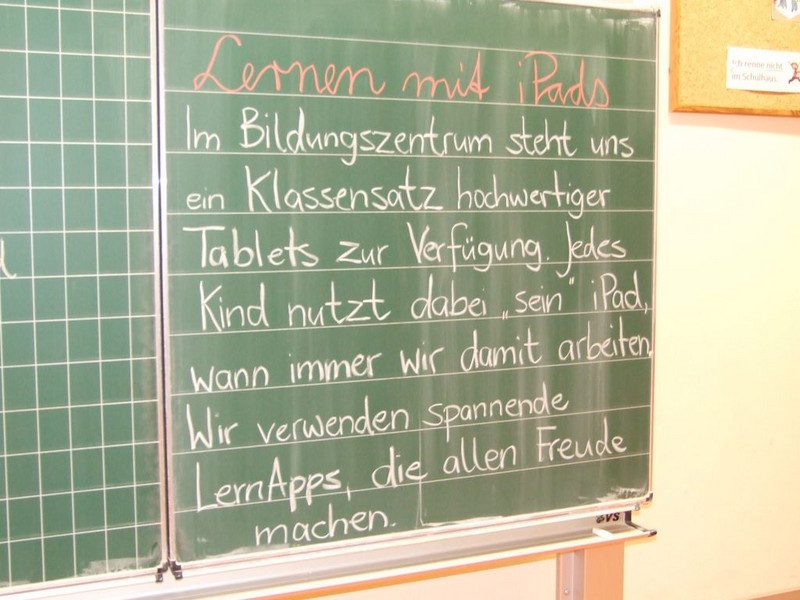 Lernen mit iPads
Im Bildungszentrum steht uns
ein Klassensatz hochwertiger
Tablets zur Verfügung. Jedes
Kind nutzt dabei „sein" iPad,
wann immer wir damit arbeiten.
Wir verwenden spannende
LernApps, die allen Freude
machen.
Ich renne nicht
im Schulhaus.
GVS